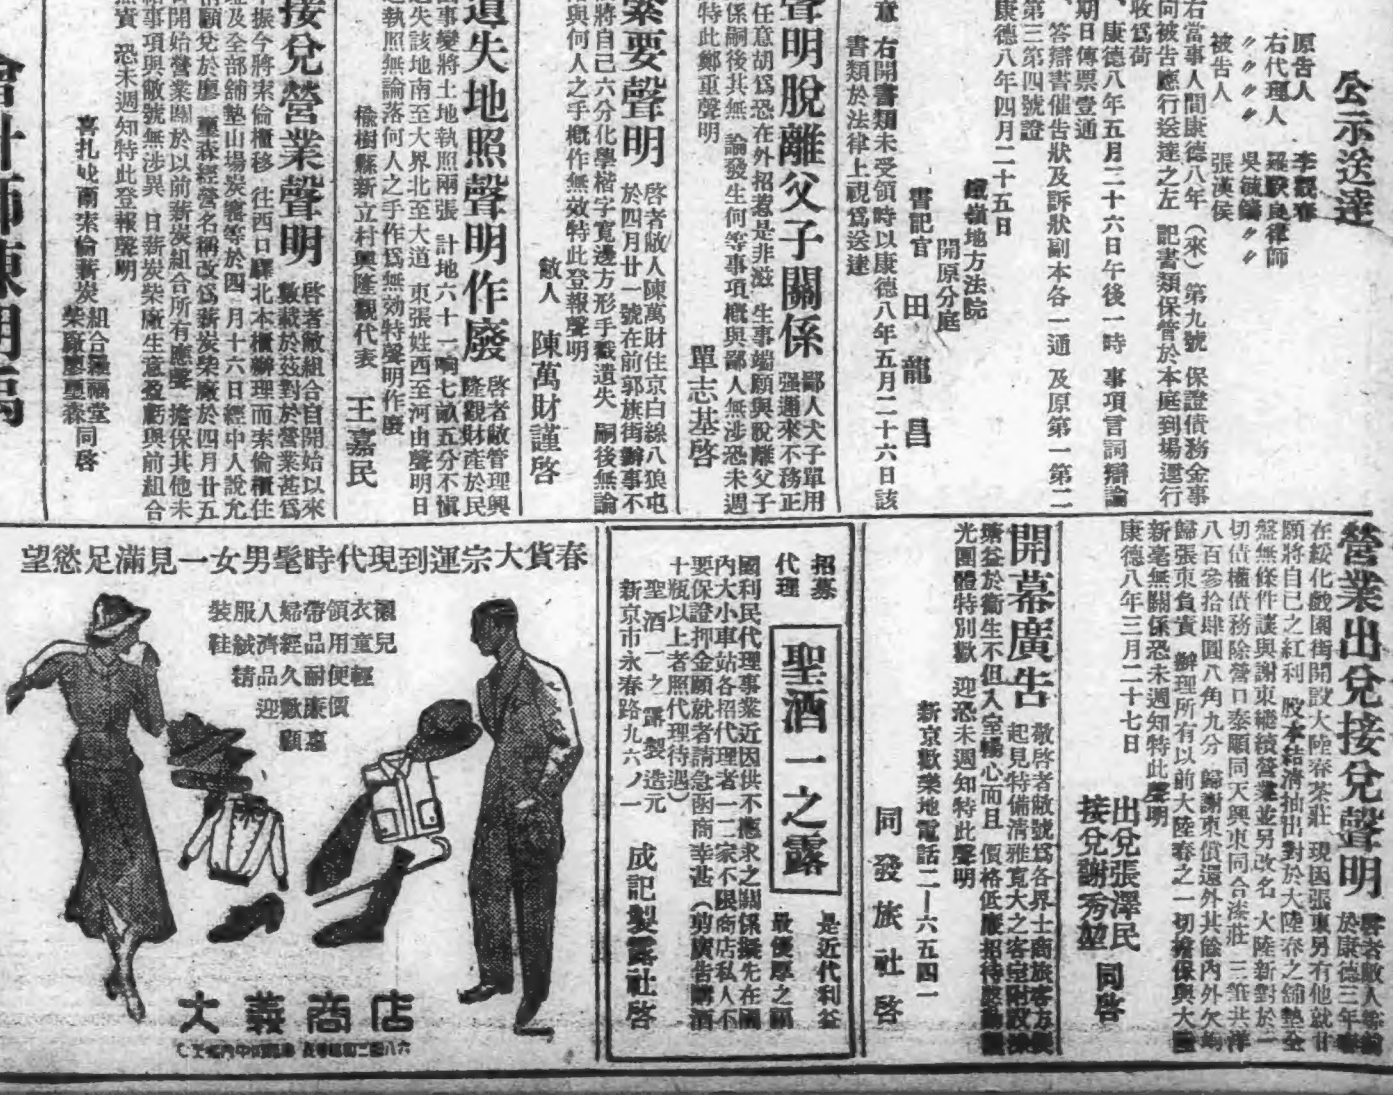 公示送達
原告人　李
右代理人　羅　良律師
〃〃〃　吳　鑄〃〃
被告人　張漢侯
右當事人間康德八年（來）第九號　保證債務金事
向被告應行送達之左　記書類保管於本庭到場逕行
收爲荷
康德八年五月二十六日午後一時　事項言詞辯論
期日傳票壹通
答辯書催告狀及訴狀副本各一通　及原第一第二
第三第四號證
康德八年四月二十五日
鐵嶺地方法院
開原分庭
書記官　田　龍　昌
右開書類未受領時以康德八年五月二十六日該
書類於法律上視爲送達
聲明脫離父子關係
鄙人犬子單用
强邇來不務正
任意胡爲恐在外招惹是非滋　生事端願與脫離父子
係嗣後其無　論發生何等事項概與鄙人無涉恐未週
特此鄭重聲明
單志基啓
緊要聲明
啓者敝人陳萬財住京白線八狼屯
於四月廿一號在前郭旗街辦事不
將自己六分化學楷字寬邊方形手戳遺失　嗣後無論
與何人之手概作無效特此登報聲明
敝人　陳萬財謹啓
遺失地照聲明作廢
啓者敝管理興
隆觀財產於民
事變將土地執照兩張　計地六十一晌七畝五分不愼
失該地南至大界北至大道　東張姓西至河由聲明日
執照無論落何人之手作爲無効特聲明作廢
楡樹縣新立村興隆觀代表　王嘉民
接兌營業聲明
啓者敝組合自開始以來
數載於茲對於營業甚爲
振今將索倫櫃移　往西口驛北本櫃辦理而索倫櫃住
及全部舖墊山場炭窰等於四　月十六日經中人說允
願兌於廖　璽森經營名稱改爲薪炭柴廠於四月廿五
開始營業關於以前薪炭組合所有應聲　擔保其他未
事項與敝號無涉異　日薪炭柴廠生意盈虧與前組合
無責　恐未週知特此登報聲明
喜扎嘎爾索倫薪炭
組合　福堂
柴廠廖璽森
同啓
會計師陳明
營業出兌接兌聲明
啓者敝人等
於康德三年
在綏化戲園街開設大陸春茶莊　現因張東另有他就甘
願將自己之紅利　股本結濟抽出對於大陸春之舖墊全
盤無條件讓與謝東繼續營業並另改名　大陸新對於一
切債權債務除營口泰順同天興東同合　莊　三
八百參拾肆圓八角九分　歸謝東償還外其餘內外欠
歸張東負責　辦理所有以前大陸春之一切擔保與大
新毫無關係恐未週知特此聲明
康德八年三月二十七日
出兌張澤民
接兌謝秀
同啓
開幕廣告
敬啓者敝號爲各界士商旅客方
起見特備淸雅寬大之客室附設
塘益於衞生不但入室暢心而且　價格低廉招待
光團體特別歡　迎恐未週知特此聲明
新京歡樂地電話二一六五四一
同發旅社啓
招募
代理
聖酒一之露
是近代利益
最優厚之
國利民代理事業近因供不應求之關係擬先在國
內大小車站各招代理者一二家不限商店私人不
要保證押金願就者請急函商幸甚（剪廣告購酒
十瓶以上者照代理待遇）
聖酒一之露製造元
新京市永春路九六ノ一
成記製露社啓
望慾足滿見一女男髦時代現到運宗大貨春
裝服人婦帶領衣襯
鞋絨濟經品用童兒
精品久耐便輕
迎歡廉價
顧惠
大義商店